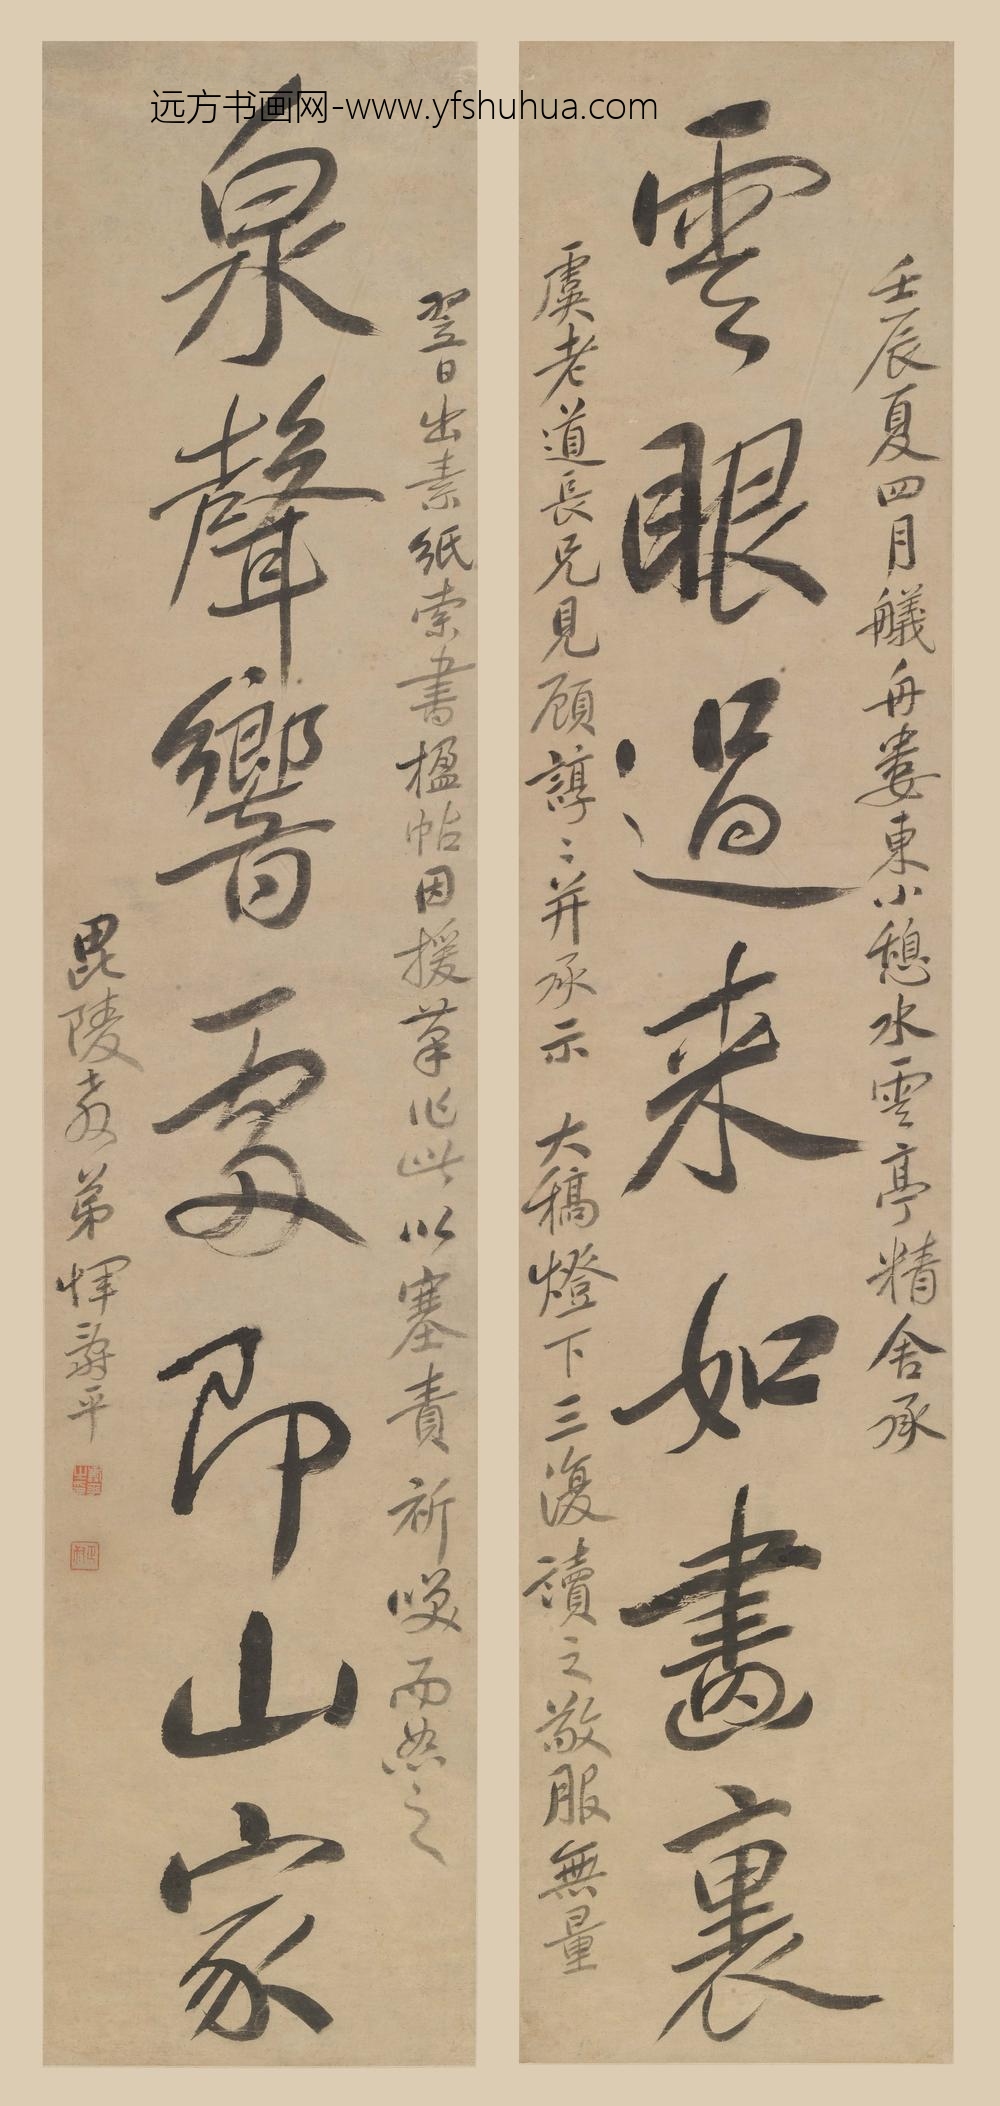 远方书画网-www.yfshuhua.com
壬辰夏四月艤舟婁東小憩水雲亭精舍承
雲眼過來如畫裏
虞老道長兄見顧諄〻并承示 大稿燈下三復讀之敬服無量
翌日出素紙索書楹帖因援筆作此以塞責祈唉而恕之
泉聲響處即山家
毘陵教弟惲壽平